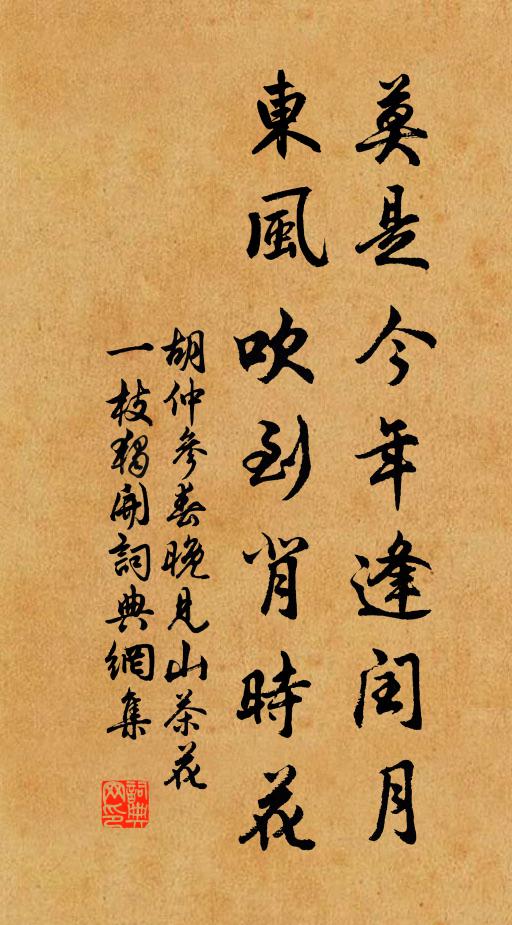 莫是今年逢閏月
東風吹到背時花
胡仲參春晚見山茶花
一枝獨開詞典網集
詞典
网印